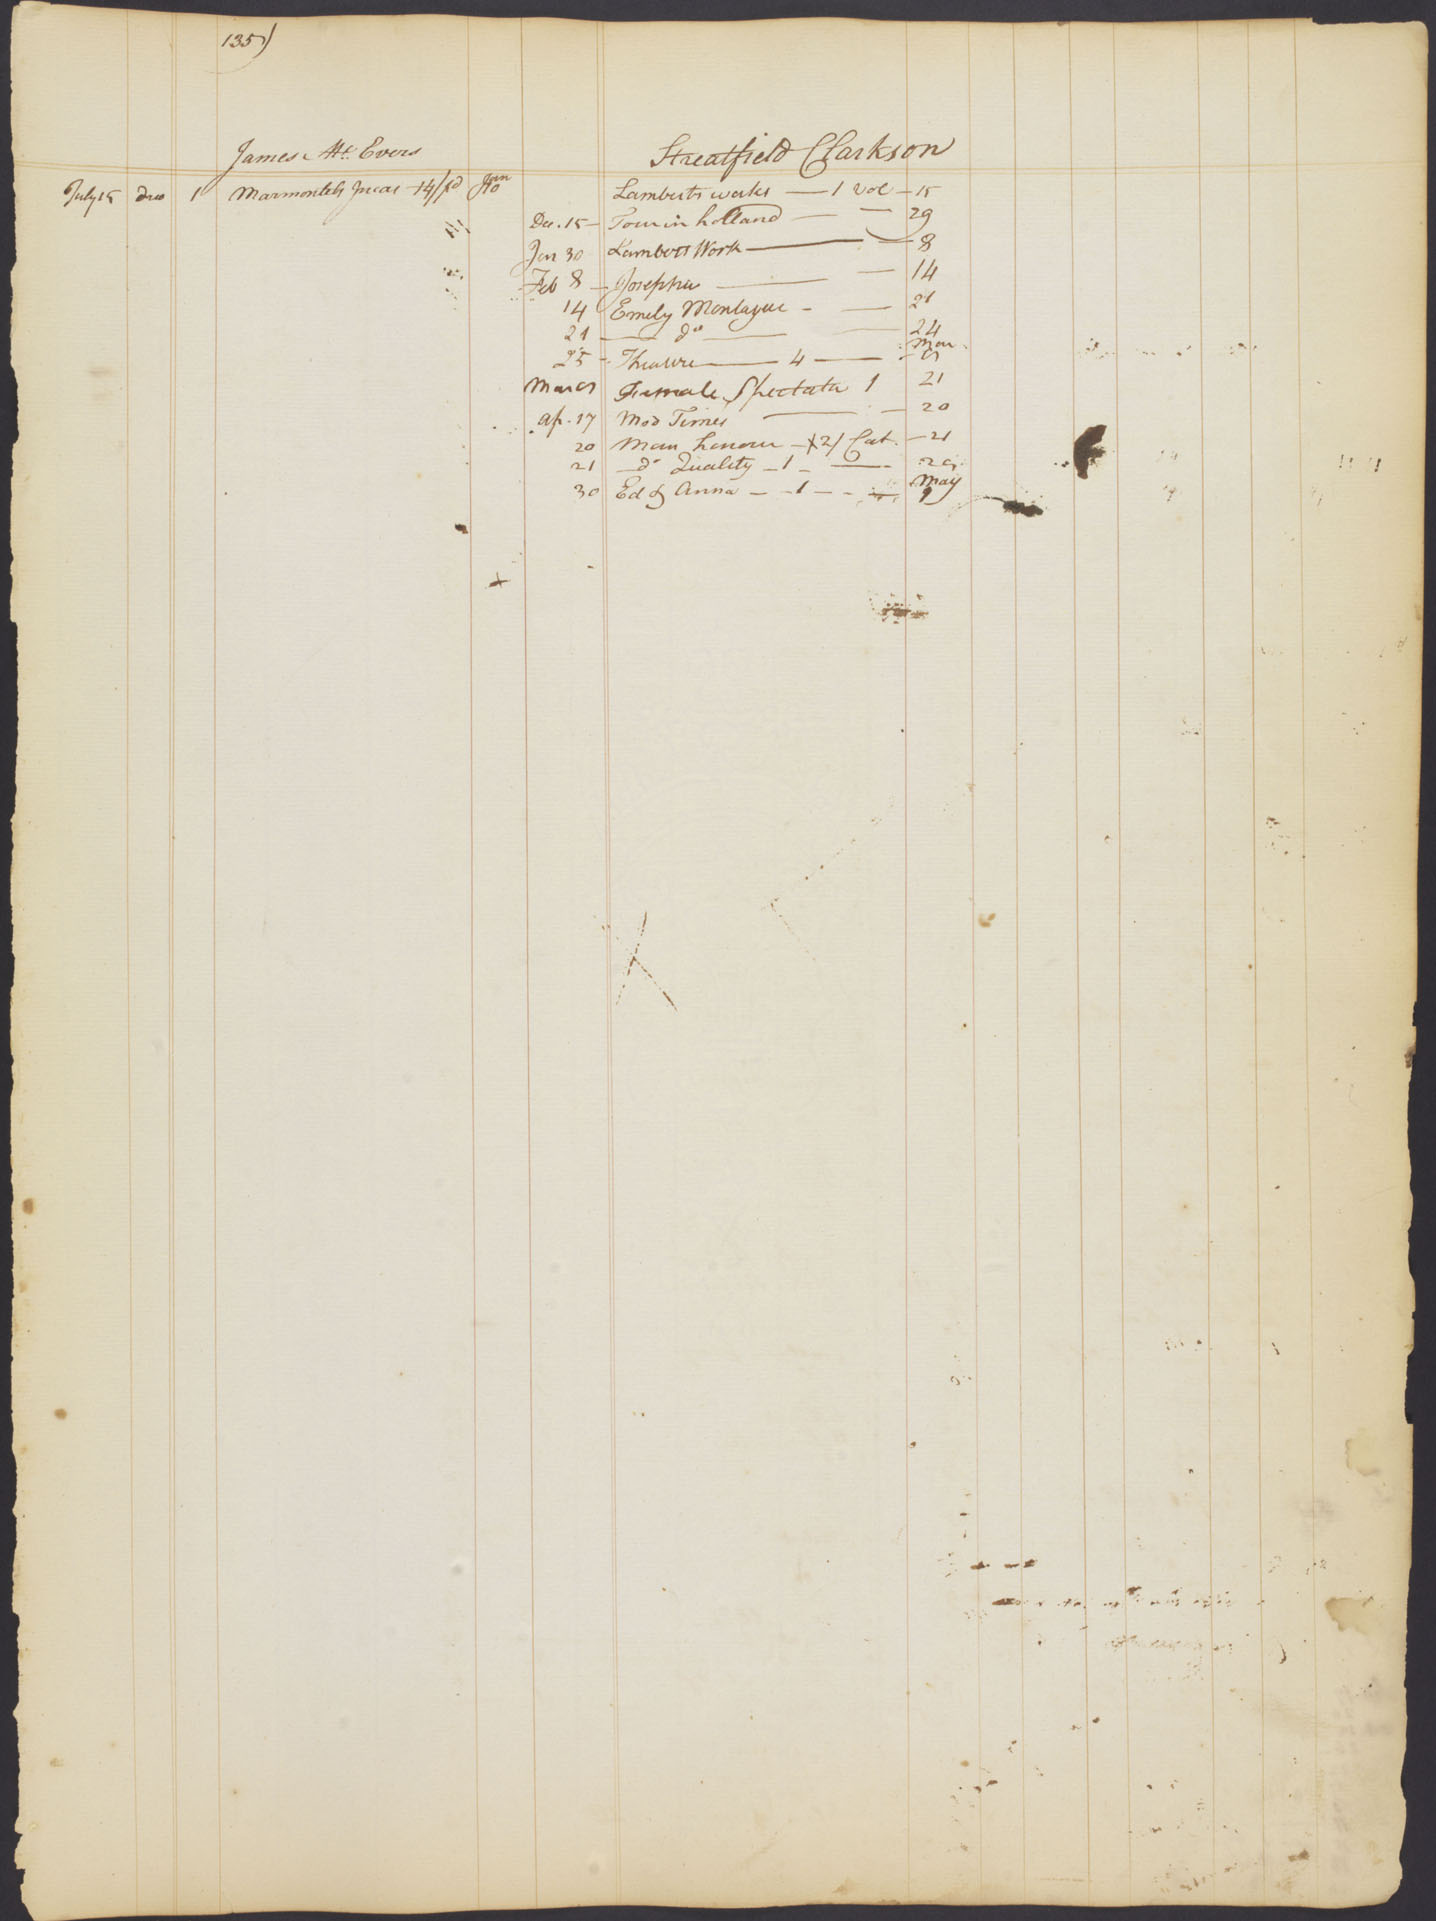 135)
James Mc. Evers
July 15 Duo 1 Marmontels Incas 14/pd Jan 10
Streatfield Clarkson
Lamberts works — 1 vol — 15
Dec. 15 — Tour in holland — — 29
Jan 30 Lamberts Work — — 8
Feb 8 — Josephus — — 14
14 Emely Montague - — 21
21 — do — — 24
25 - Theatre — 4 — Mar
Mar Female Spectatr 1 21
Ap. 17 Mod Times — — 20
20 Man honour — 2/ Cat. — 21
21 — do Quality — 1 - —
30 Ed & Anna — - 1 — - — May 9